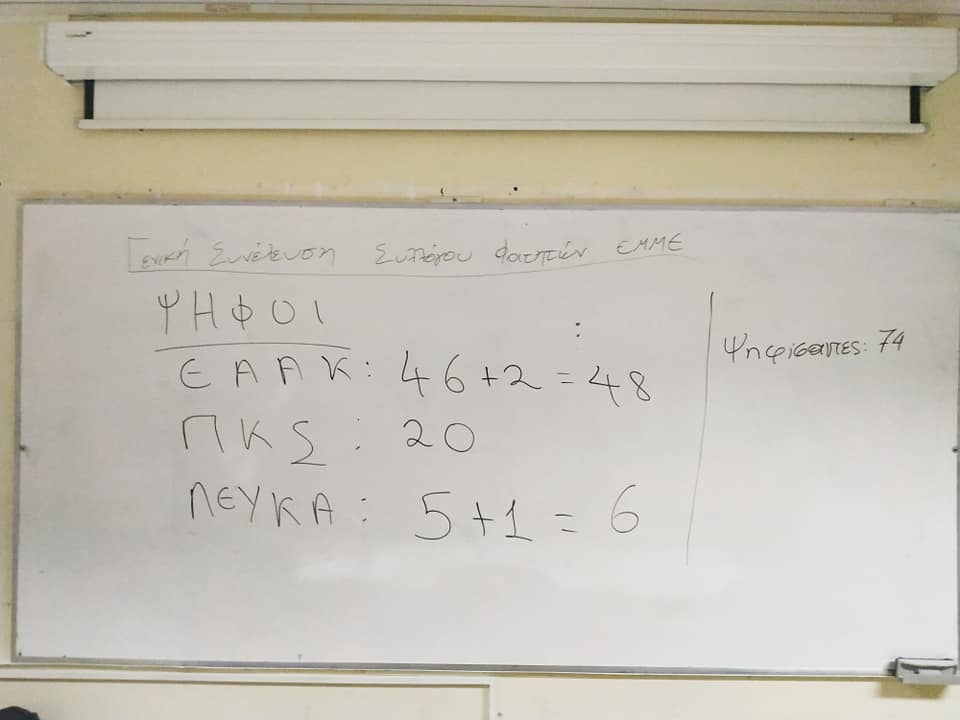 Γενική Συνέλευση Συλλόγου Φοιτητών ΕΜΜΕ
ΨΗΦΟΙ
ΕΑΑΚ: 46+2=48
ΠΚΣ: 20
ΛΕΥΚΑ: 5+1=6
Ψηφίσαντες: 74